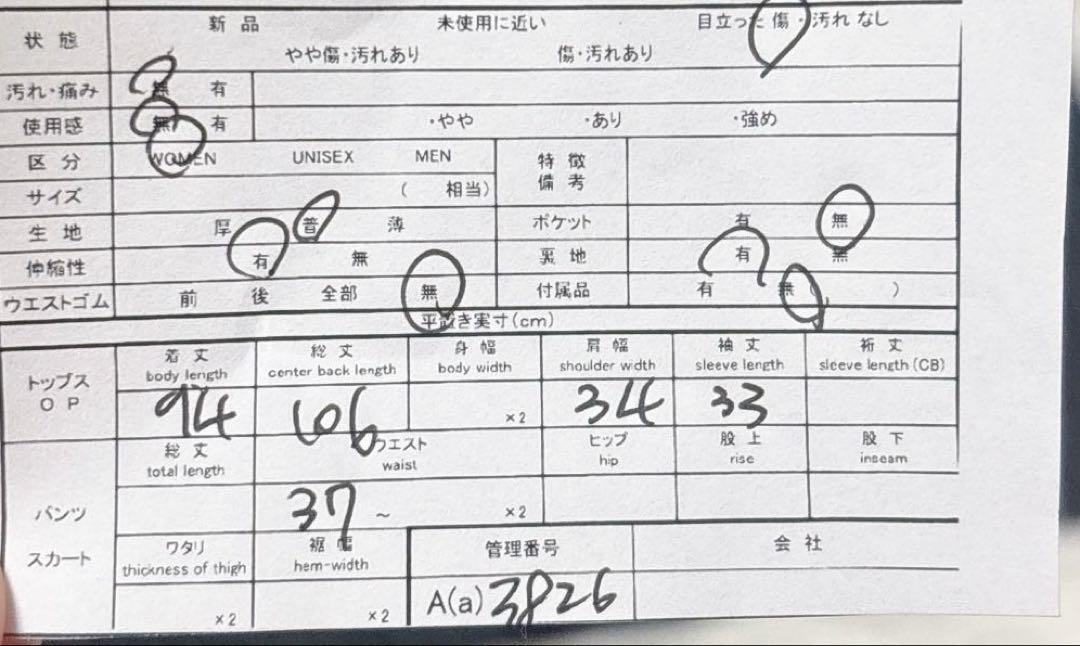 状態 新品 未使用に近い 目立った傷・汚れなし
やや傷・汚れあり 傷・汚れあり
汚れ・痛み 無 有
使用感 無 有 ・やや ・あり ・強め
区分 WOMEN UNISEX MEN 特徴備考
サイズ ( 相当)
生地 厚 普 薄 ポケット 有 無
伸縮性 有 無 裏地 有 無
ウエストゴム 前 後 全部 無 付属品 有 無( )
平置き実寸(cm)
着丈 総丈 身幅 肩幅 袖丈 裄丈
body length center back length body width shoulder width sleeve length sleeve length(CB)
トップス
OP 94 106 ×2 34 33
総丈 ウエスト ヒップ 股上 股下
total length waist hip rise inseam
パンツ 37 ~ ×2
スカート ワタリ 裾幅 管理番号 会社
thickness of thigh hem-width
×2 ×2 A(a) 3826